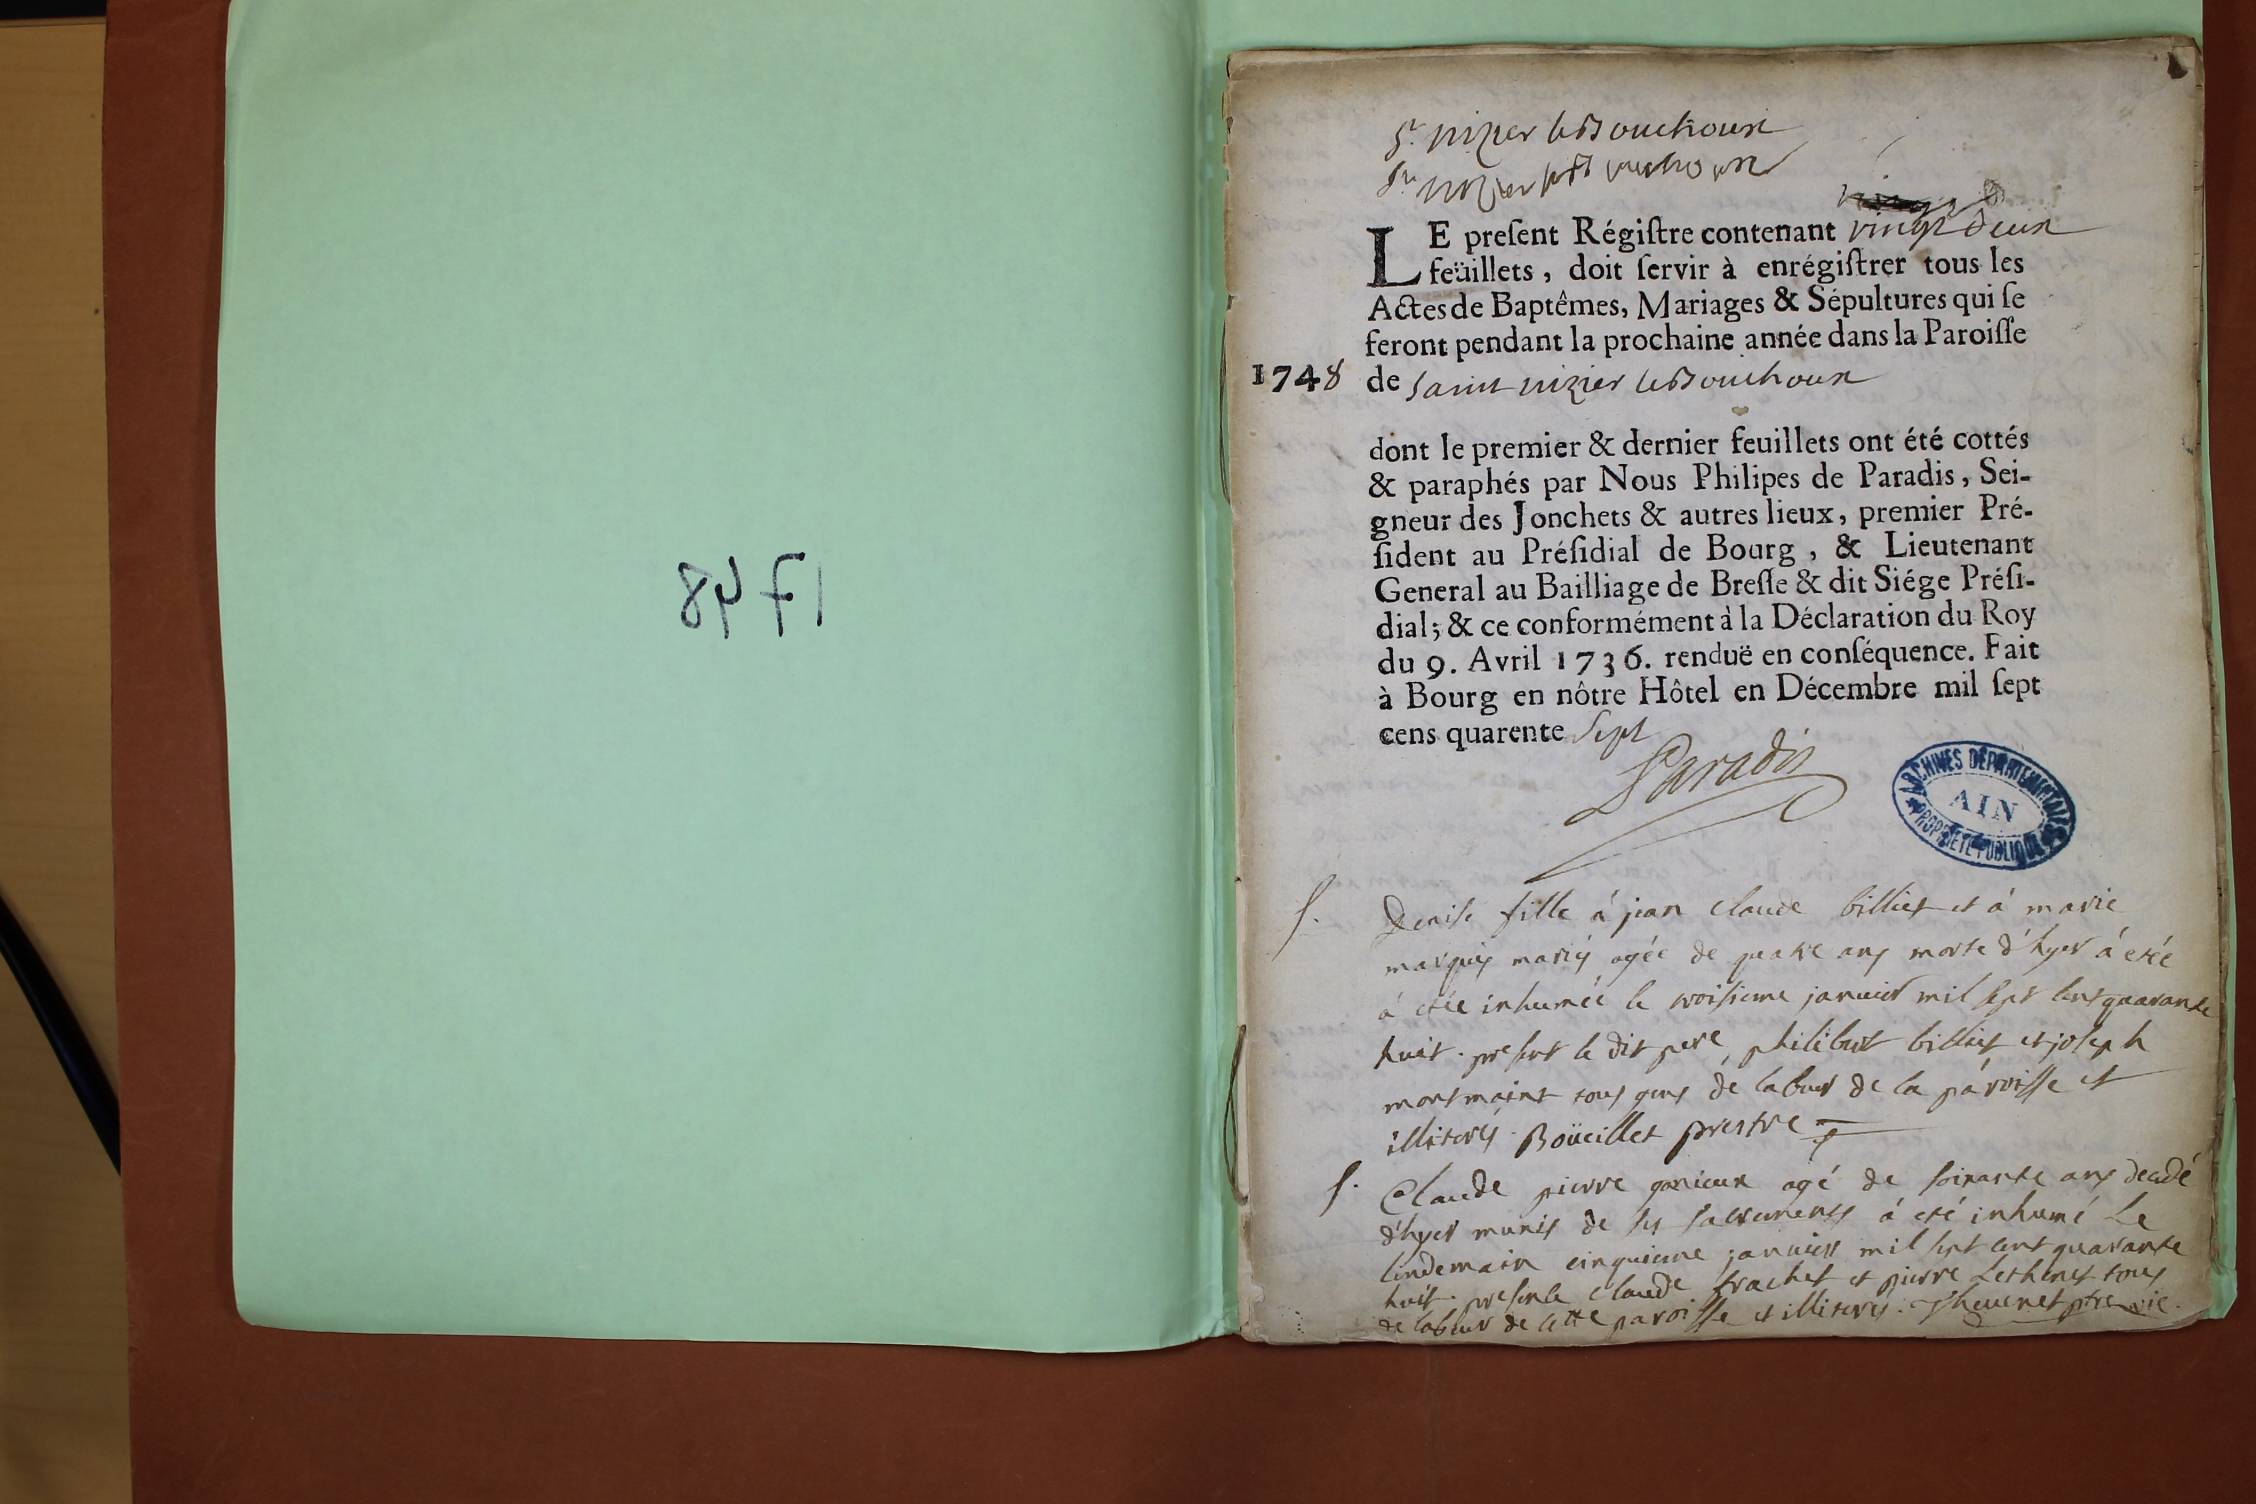 1748
St nizier leBouchoux
St nizier le Bouchoux
LE preſent Régiſtre contenant vingt deux
feüillets, doit ſervir à enrégiſtrer tous les
Actes de Baptêmes, Mariages & Sépultures qui ſe
feront pendant la prochaine année dans la Paroiſſe
1748 de saint nizier leBouchoux
dont le premier & dernier feuillets ont été cottés
& paraphés par Nous Philipes de Paradis, Sei-
gneur des Jonchets & autres lieux, premier Pré-
ſident au Préſidial de Bourg, & Lieutenant
General au Bailliage de Breſſe & dit Siége Préſi-
dial; & ce conformément à la Déclaration du Roy
du 9. Avril 1736. renduë en conſéquence. Fait
à Bourg en nôtre Hôtel en Décembre mil ſept
cens quarente sept
Paradis
ARCHIVES DÉPARTEMENTALES
AIN
PROPRIÉTÉ PUBLIQUE
S. Denise fille à jean claude billiet et à marie
marquis mariés agée de quatre ans morte d'hyer à etée
à etée inhumée le troisieme janvier mil sept cent quarante
huit. present le dit pere, philibert billiet et joseph
montmaint tous gens de labeur de la paroisse et
illiterés. Boüeillet prestre
S. Claude pierre agé de soixante ans decedé
d'hyer munis de ses sacrements à eté inhumé Le
lendemain cinquieme janvier mil sept cent quarante
huit. presents claude trachet et pierre tous
de labeur de cette paroisse et illiterés. Thevenet ptre vic.